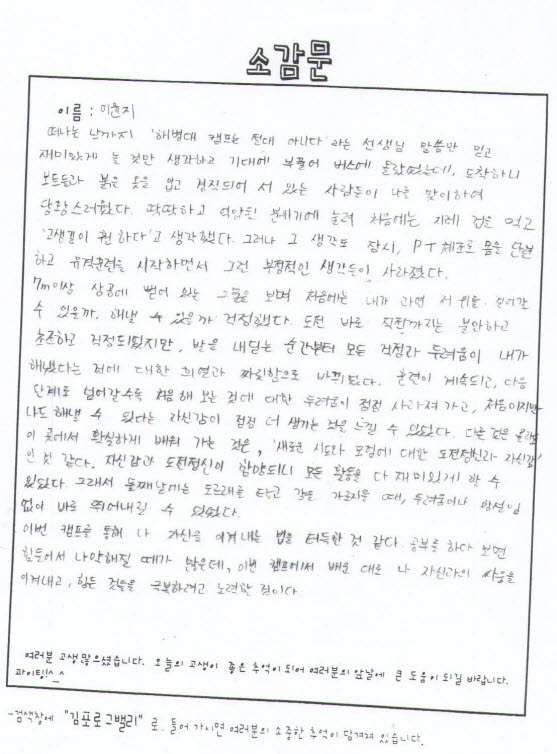 소감문
이름 : 이윤지
떠나는 날까지 '해병대 캠프는 절대 아니다' 라는 선생님 말씀만 믿고
재미있게 놀 것만 생각하고 기대에 부풀어 버스에 올랐었는데, 도착하니
보트들과 붉은 옷을 입고 경직되어 서 있는 사람들이 나를 맞이하여
당황스러웠다. 딱딱하고 억압된 분위기에 눌려 처음에는 지레 겁을 먹고
'고생길이 훤하다'고 생각했다. 그러나 그 생각도 잠시, PT체조로 몸을 단련
하고 유격훈련을 시작하면서 그런 부정적인 생각들이 사라졌다.
7m이상 상공에 뻗어 있는 그물을 보며 처음에는 내가 과연 저 위를 걸어갈
수 있을까. 해낼 수 있을까 걱정했다. 도전 바로 직전까지는 불안하고
초조하고 걱정되었지만, 발을 내딛는 순간부터 모든 걱정과 두려움이 내가
해냈다는 점에 대한 희열과 짜릿함으로 바뀌었다. 훈련이 계속되고, 다음
단계로 넘어갈수록 처음 해 보는 것에 대한 두려움이 점점 사라져 가고, 처음이지만
나도 해낼 수 있다는 자신감이 점점 더 생기는 것을 느낄 수 있었다. 다른 것은 몰라도
이 곳에서 확실하게 배워 가는 것은, '새로운 시도와 모험에 대한 도전정신과 자신감'
인 것 같다. 자신감과 도전정신이 함양되니 모든 활동을 다 재미있게 할 수
있었다. 그래서 둘째날에는 도르래를 타고 강을 가로지를 때, 두려움이나 망설임
없이 바로 뛰어내릴 수 있었다.
이번 캠프를 통해 나 자신을 이겨내는 법을 터득한 것 같다. 공부를 하다 보면
힘들어서 나약해질 때가 많은데, 이번 캠프에서 배운 대로 나 자신과의 싸움을
이겨내고, 힘든 것들을 극복하려고 노력할 것이다
여러분 고생 많으셨습니다. 오늘의 고생이 좋은 추억이 되어 여러분의 앞날에 큰 도움이 되길 바랍니다.
파이팅!^_^
-검색창에 "김포로그밸리" 로 들어 가시면 여러분의 소중한 추억이 담겨져 있습니다.